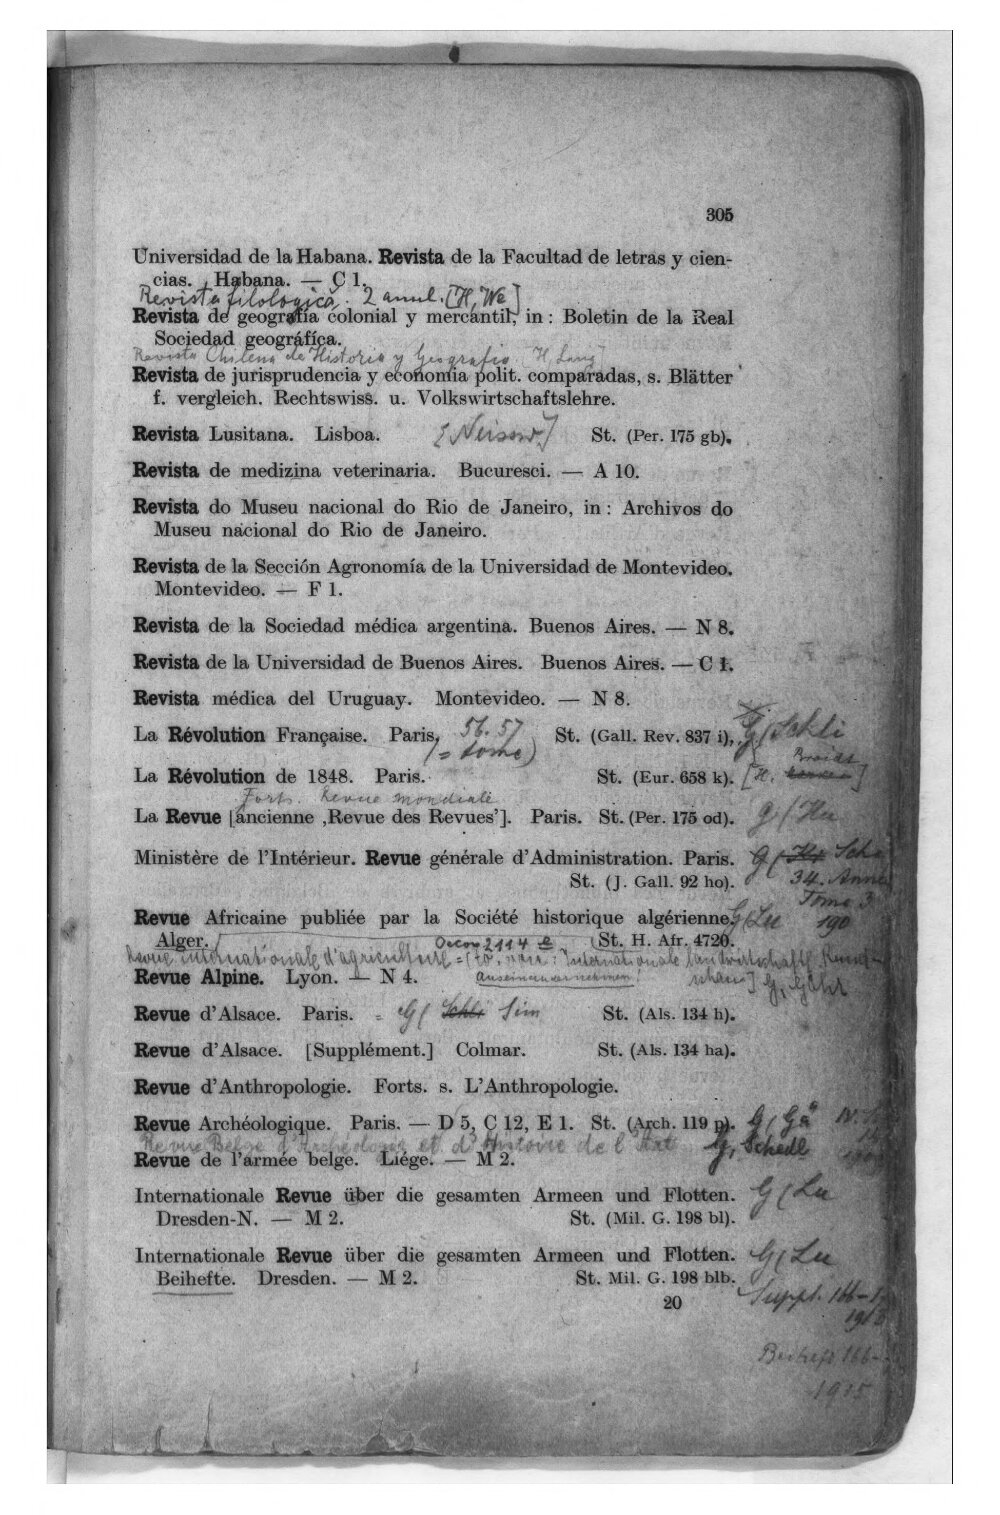 305
Universidad de la Habana. Revista de la Facultad de letras y cien-
cias. Habana. — C 1.
Revista filologica. 2 annul. [H, We]
Revista de geografía colonial y mercantil, in: Boletin de la Real
Sociedad geográfica.
Revista Chilena de Historia y Geografia H, Lang
Revista de jurisprudencia y economia polit. comparadas, s. Blätter
f. vergleich. Rechtswiss. u. Volkswirtschaftslehre.
Revista Lusitana. Lisboa. St. (Per. 175 gb).
Revista de medizina veterinaria. Bucuresci. — A 10.
Revista do Museu nacional do Rio de Janeiro, in: Archivos do
Museu nacional do Rio de Janeiro.
Revista de la Sección Agronomía de la Universidad de Montevideo.
Montevideo. — F 1.
Revista de la Sociedad médica argentina. Buenos Aires. — N 8.
Revista de la Universidad de Buenos Aires. Buenos Aires. — C 1.
Revista médica del Uruguay. Montevideo. — N 8.
La Révolution Française. Paris. 56. 57 St. (Gall. Rev. 837 i). G/Schli
(= tome)
La Révolution de 1848. Paris. St. (Eur. 658 k). [H.
Forts. Revue mondiale
La Revue [ancienne ‚Revue des Revues']. Paris. St. (Per. 175 od). G (Hu
Ministère de l'Intérieur. Revue générale d'Administration. Paris. G (
St. (J. Gall. 92 ho). 34. Année
Tome 3
Revue Africaine publiée par la Société historique algérienne. G/Lu 190
Alger. Oecon 2114 e (St. H. Afr. 4720.
Revue internationale d'agriculture = Internationale landwirtschaftl.
Revue Alpine. Lyon. — N 4. auseinandernehmen! G,
Revue d'Alsace. Paris. = G( Schli Sim St. (Als. 134 h).
Revue d'Alsace. [Supplément.] Colmar. St. (Als. 134 ha).
Revue d'Anthropologie. Forts. s. L'Anthropologie.
Revue Archéologique. Paris. — D 5, C 12, E 1. St. (Arch. 119 p). G, Gä
Revue Belge d'Archéologie et d'Histoire de l'Art G, Schedl
Revue de l'armée belge. Liége. — M 2.
Internationale Revue über die gesamten Armeen und Flotten. G (Lu
Dresden-N. — M 2. St. (Mil. G. 198 bl).
Internationale Revue über die gesamten Armeen und Flotten. G (Lu
Beihefte. Dresden. — M 2. St. Mil. G. 198 blb.
20 Suppl. 166-
Beiheft 166-
1915